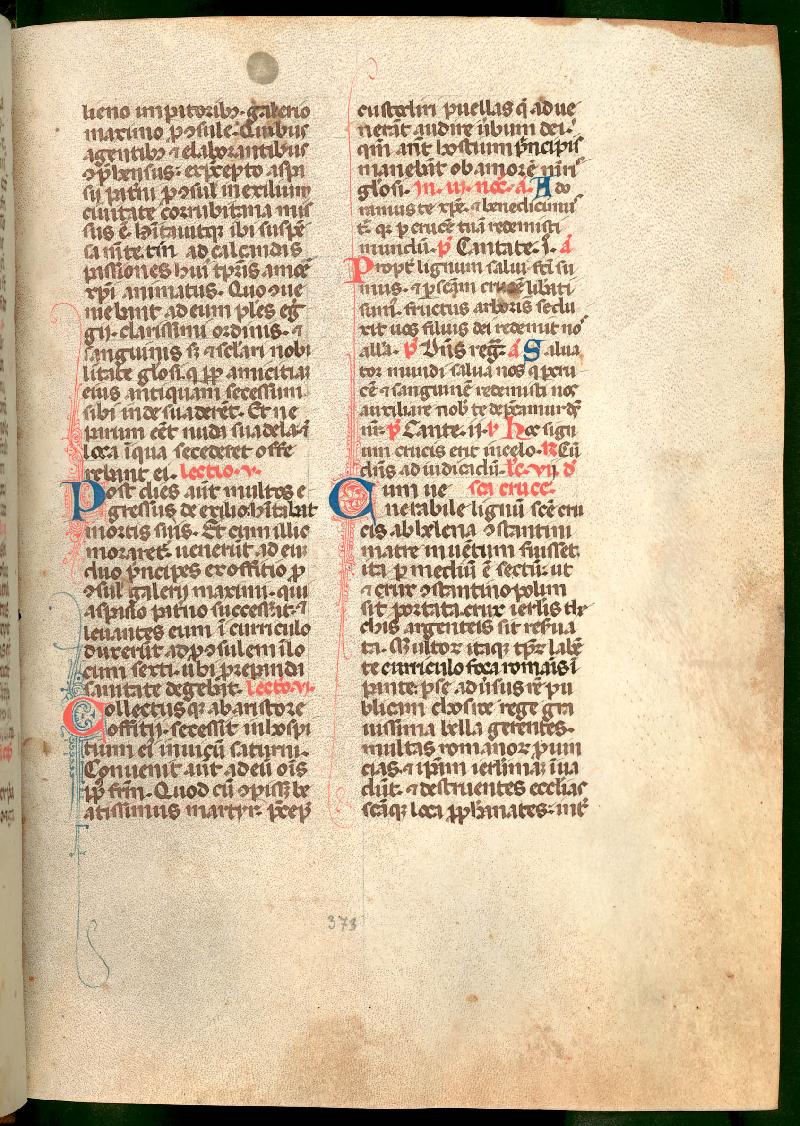 lieno impitoribꝫ. galerio
maximo ꝓ ꝯsule. Quibus
agentibꝫ ⁊ elaborantibus
ꝯp̃hensus. exp̃cepto aspi
sii pat̃ni ꝓ ꝯsul in exilium
ciuitate corrubitana mis
sus ẽ. h̃itauitqꝫ ibi suspẽ
sa
ad calcandis
passiones hui
xp̃i animatus. Quo ꝯue
niebant ad eum ples eg̃
gii. clarissimi ordinis. ⁊
sanguinis sꝫ ⁊ sc̃lari nobi
litate glosi. q̃ ꝓp̃ amicitiaꝫ
eius antiquam secessum
sibi inde suaderẽt. Et ne
parum eẽt nuda suadela ĩ
loca ĩ qua secederet offe
rebant ei. lectio. v.
Post dies aũt multos e
gressus de exilio h̃itabat
mortis suis. Et cum illic
moraretꝫ uenerũt ad eũ
duo p̃ncipes ex offitio ꝓ
ꝯsul galerij maximi. qui
aspasio pat̃no successit. ⁊
leuantes eum ĩ curriculo
duxerũt ad ꝓ ꝯsulem ĩ lo
cum sexti. ubi ꝓ repanda
sanitate degebat. lectio. vi.
Collectusqꝫ ab aristore
offitij. secessit in hospi
tium ei in uicũ saturni.
Conuenit aũt ad eũ oĩs
ip̃e frm̃. Quod cũ ꝯpisset be
atissimus martyr. p̃cep̃
custodiri puellas q̃ adue
nerãt audire ũbum dei.
qm̃ añt hostium p̃ncipis
manebãt ob amorẽ
glosi. in. iii. noc̃. a. Ado
ramus te xp̃e. ⁊ benedicimus
t̃. q̃ ꝑ crucẽ tuã redemisti
mundũ. p̃ Cantate. i. a
Propt̃ lignum salui fc̃i su
mus. ⁊ ꝑ sc̃am crucẽ libati
sum̃. fructus arboris sedu
xit uos filius dei redemit no
alla. p̃ Dñs reg̃. a Salua
tor mundi salua nos q̃ ꝑ cru
cẽ ⁊ sanguinẽ redemisti nos
auxiliare nob̃ te dep̃camur dš
nr̃. p̃ Cante. ii. v̉ hoc sign
um crucis erit in celo. ℟ Cũ
dñs ad iudicãdũ. lc̃. vij. d̓
Cum ue sc̃a cruce.
nerabile lignũ sc̃e cru
cis ab helena ꝯstantini
matre inuẽtum fuisset.
ita ꝑ mediũ ẽ sectũ. ut
⁊ crux ꝯstantinopolim
sit portata. crux ierl̃is the
chis argenteis sit resẽua
ta. Mltor̃ itaqꝫ tp̃r labẽ
te curriculo foca romãis ĩ
pãnte. pse ad usus rẽ pu
blicam chosroe rege gra
uissima bella gerentes.
multas romanor̃ ꝓuin
cias. ⁊ ip̃am ierl̃imaꝫ ĩua
dũt. ⁊ destruentes ecclias
sc̃aqꝫ loca ꝓphanates. int̃
373